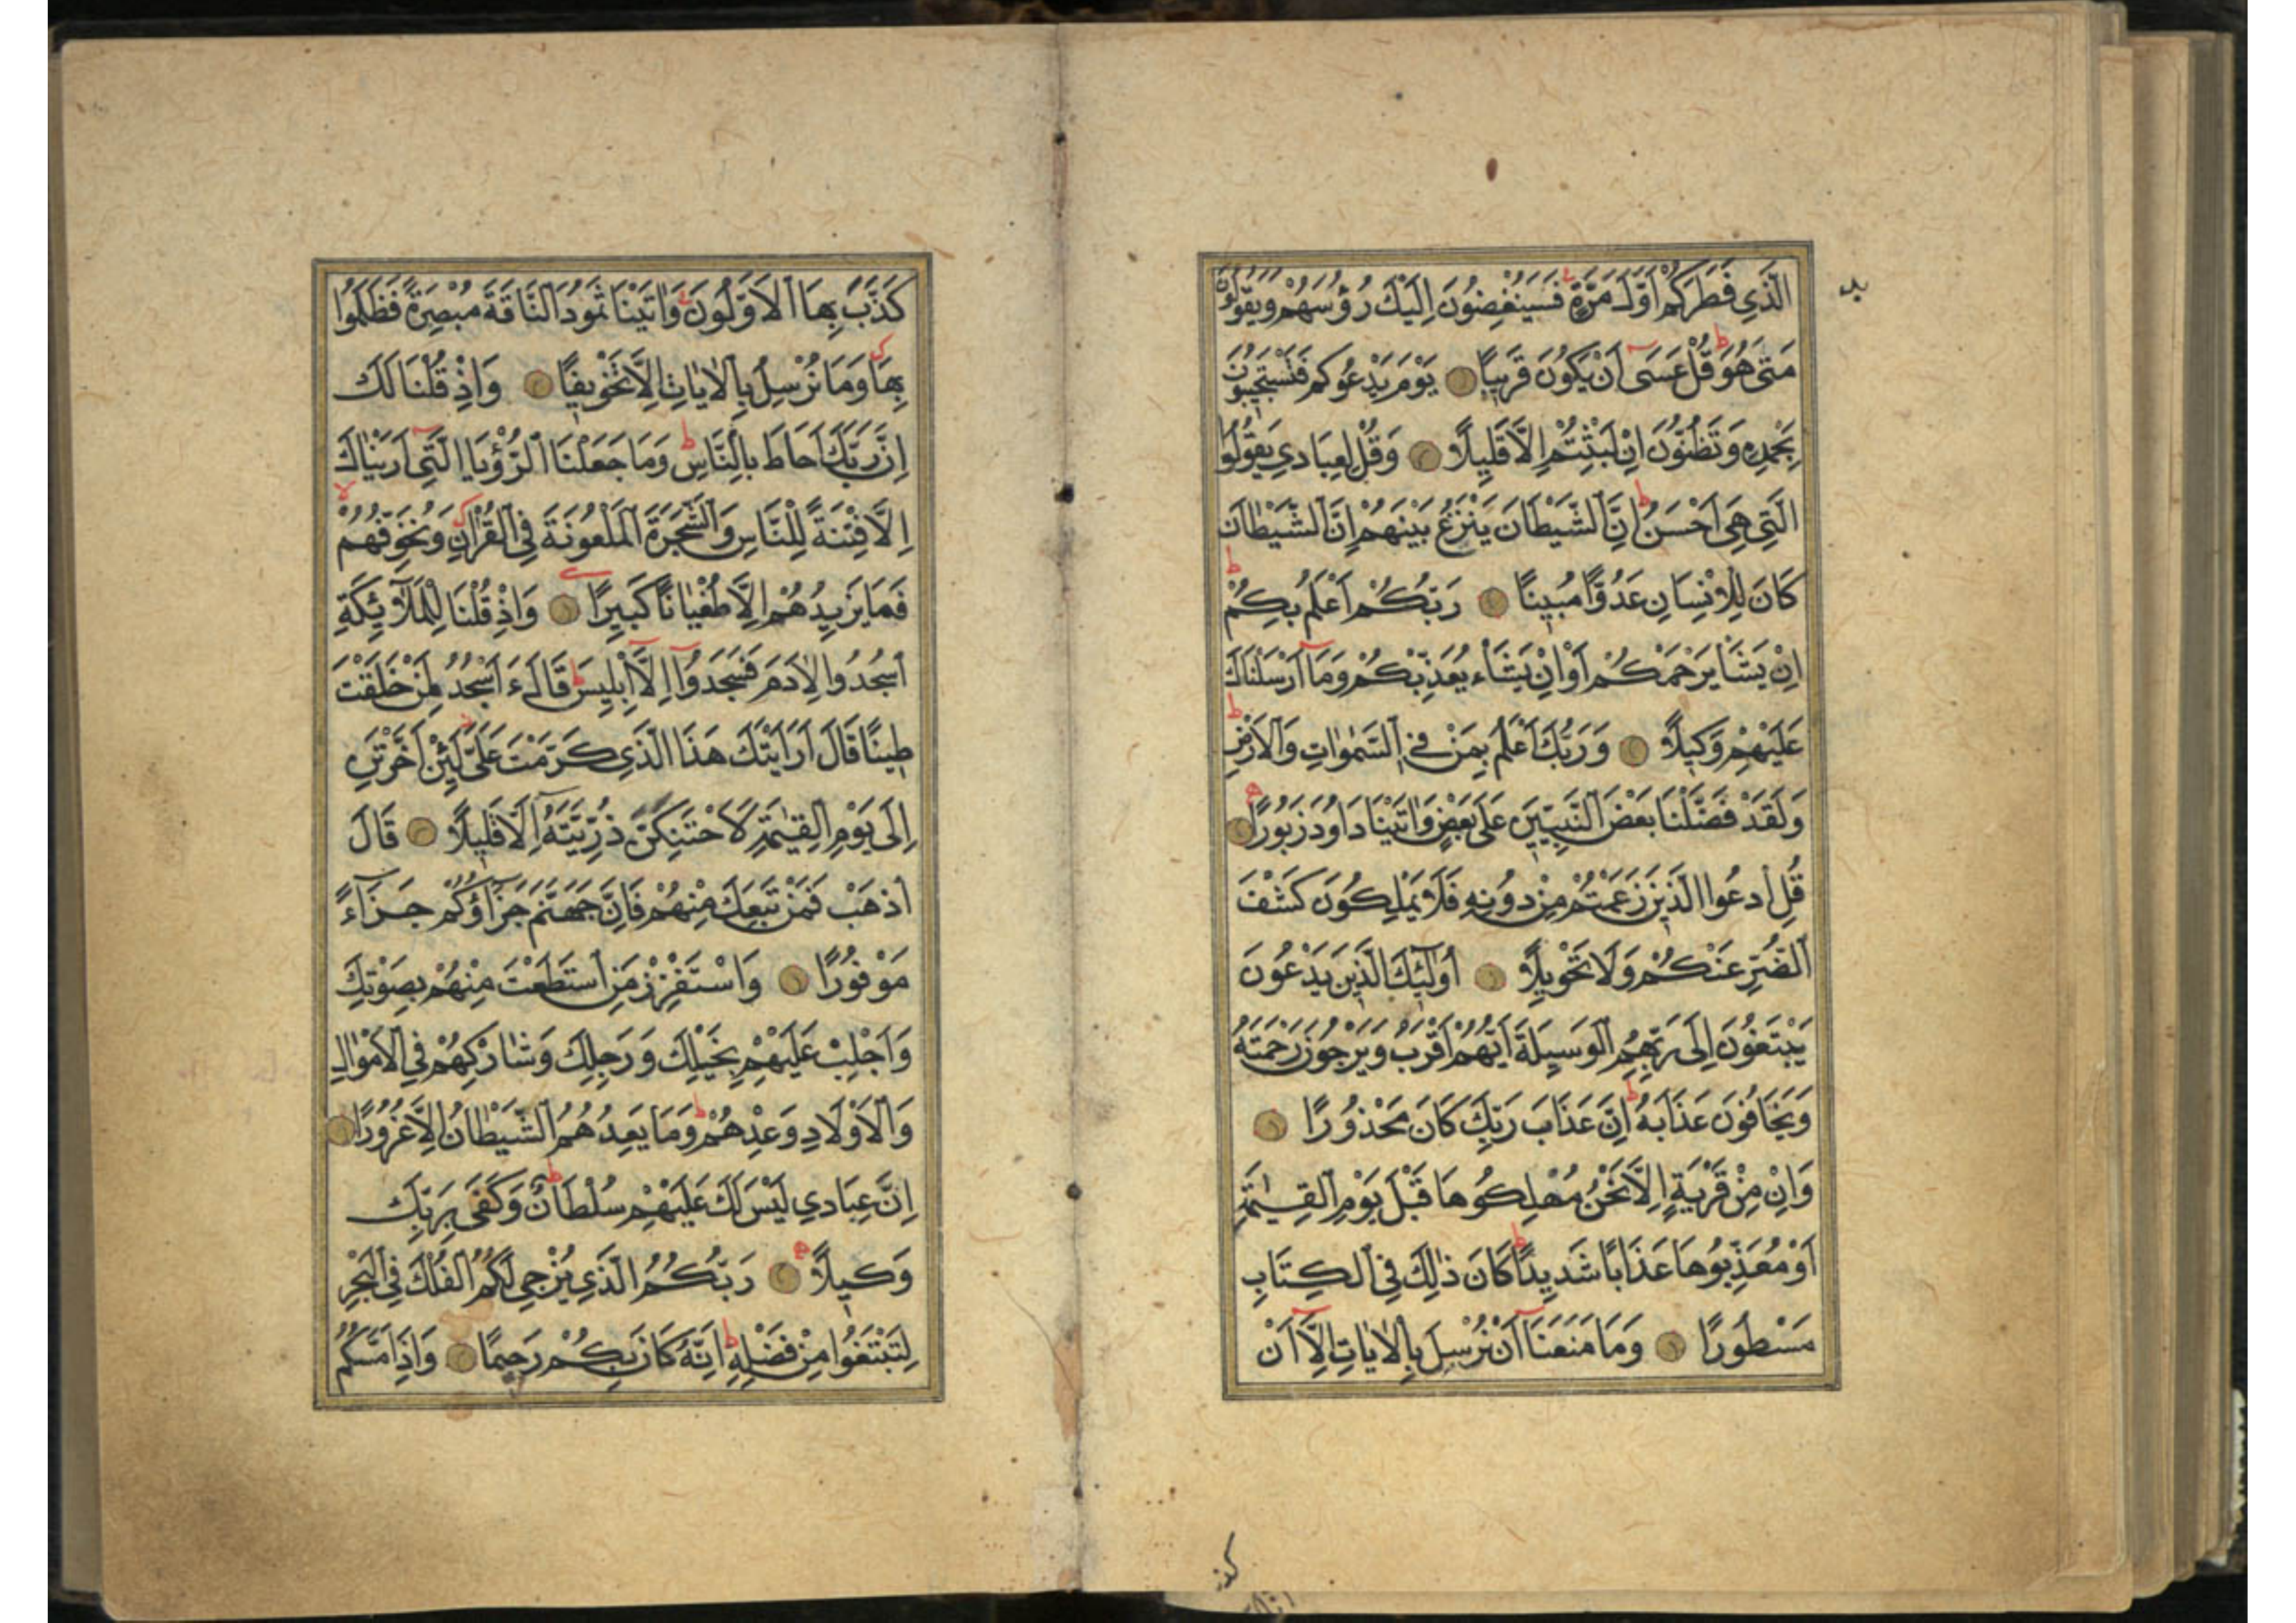 الَّذِي فَطَرَكُمْ اَوَّلَ مَرَّةٍ فَسَيُنْغِضُونَ اِلَيْكَ رُؤُسَهُمْ وَيَقُولُونَ
مَتٰى هُوَ قُلْ عَسَى اَنْ يَكُونَ قَرِيبًا يَوْمَ يَدْعُوكُمْ فَتَسْتَجِيبُونَ
بِحَمْدِهِ وَتَظُنُّونَ اِنْ لَبِثْتُمْ اِلَّا قَلِيلًا وَقُلْ لِعِبَادِي يَقُولُوا
الَّتِي هِيَ اَحْسَنُ اِنَّ الشَّيْطَانَ يَنْزَغُ بَيْنَهُمْ اِنَّ الشَّيْطَانَ
كَانَ لِلْاِنْسَانِ عَدُوًّا مُبِينًا رَبُّكُمْ اَعْلَمُ بِكُمْ
اِنْ يَشَأْ يَرْحَمْكُمْ اَوْ اِنْ يَشَأْ يُعَذِّبْكُمْ وَمَا اَرْسَلْنَاكَ
عَلَيْهِمْ وَكِيلًا وَرَبُّكَ اَعْلَمُ بِمَنْ فِي السَّمٰوَاتِ وَالْاَرْضِ
وَلَقَدْ فَضَّلْنَا بَعْضَ النَّبِيِّينَ عَلَى بَعْضٍ وَاٰتَيْنَا دَاوُدَ زَبُورًا
قُلِ ادْعُوا الَّذِينَ زَعَمْتُمْ مِنْ دُونِهِ فَلَا يَمْلِكُونَ كَشْفَ
الضُّرِّ عَنْكُمْ وَلَا تَحْوِيلًا اُولٰٓئِكَ الَّذِينَ يَدْعُونَ
يَبْتَغُونَ اِلَى رَبِّهِمُ الْوَسِيلَةَ اَيُّهُمْ اَقْرَبُ وَيَرْجُونَ رَحْمَتَهُ
وَيَخَافُونَ عَذَابَهُ اِنَّ عَذَابَ رَبِّكَ كَانَ مَحْذُورًا
وَاِنْ مِنْ قَرْيَةٍ اِلَّا نَحْنُ مُهْلِكُوهَا قَبْلَ يَوْمِ الْقِيٰمَةِ
اَوْ مُعَذِّبُوهَا عَذَابًا شَدِيدًا كَانَ ذٰلِكَ فِي الْكِتَابِ
مَسْطُورًا وَمَا مَنَعَنَا اَنْ نُرْسِلَ بِالْاٰيَاتِ اِلَّا اَنْ
كَذَّبَ بِهَا الْاَوَّلُونَ وَاٰتَيْنَا ثَمُودَ النَّاقَةَ مُبْصِرَةً فَظَلَمُوا
بِهَا وَمَا نُرْسِلُ بِالْاٰيَاتِ اِلَّا تَخْوِيفًا وَاِذْ قُلْنَا لَكَ
اِنَّ رَبَّكَ اَحَاطَ بِالنَّاسِ وَمَا جَعَلْنَا الرُّؤْيَا الَّتِي اَرَيْنَاكَ
اِلَّا فِتْنَةً لِلنَّاسِ وَالشَّجَرَةَ الْمَلْعُونَةَ فِي الْقُرْاٰنِ وَنُخَوِّفُهُمْ
فَمَا يَزِيدُهُمْ اِلَّا طُغْيَانًا كَبِيرًا وَاِذْ قُلْنَا لِلْمَلَآئِكَةِ
اسْجُدُوا لِاٰدَمَ فَسَجَدُوا اِلَّا اِبْلِيسَ قَالَ ءَاَسْجُدُ لِمَنْ خَلَقْتَ
طِينًا قَالَ اَرَاَيْتَكَ هَذَا الَّذِي كَرَّمْتَ عَلَيَّ لَئِنْ اَخَّرْتَنِ
اِلَى يَوْمِ الْقِيٰمَةِ لَاَحْتَنِكَنَّ ذُرِّيَّتَهُ اِلَّا قَلِيلًا قَالَ
اذْهَبْ فَمَنْ تَبِعَكَ مِنْهُمْ فَاِنَّ جَهَنَّمَ جَزَآؤُكُمْ جَزَآءً
مَوْفُورًا وَاسْتَفْزِزْ مَنِ اسْتَطَعْتَ مِنْهُمْ بِصَوْتِكَ
وَاَجْلِبْ عَلَيْهِمْ بِخَيْلِكَ وَرَجِلِكَ وَشَارِكْهُمْ فِي الْاَمْوَالِ
وَالْاَوْلَادِ وَعِدْهُمْ وَمَا يَعِدُهُمُ الشَّيْطَانُ اِلَّا غُرُورًا
اِنَّ عِبَادِي لَيْسَ لَكَ عَلَيْهِمْ سُلْطَانٌ وَكَفَى بِرَبِّكَ
وَكِيلًا رَبُّكُمُ الَّذِي يُزْجِي لَكُمُ الْفُلْكَ فِي الْبَحْرِ
لِتَبْتَغُوا مِنْ فَضْلِهِ اِنَّهُ كَانَ بِكُمْ رَحِيمًا وَاِذَا مَسَّكُمُ